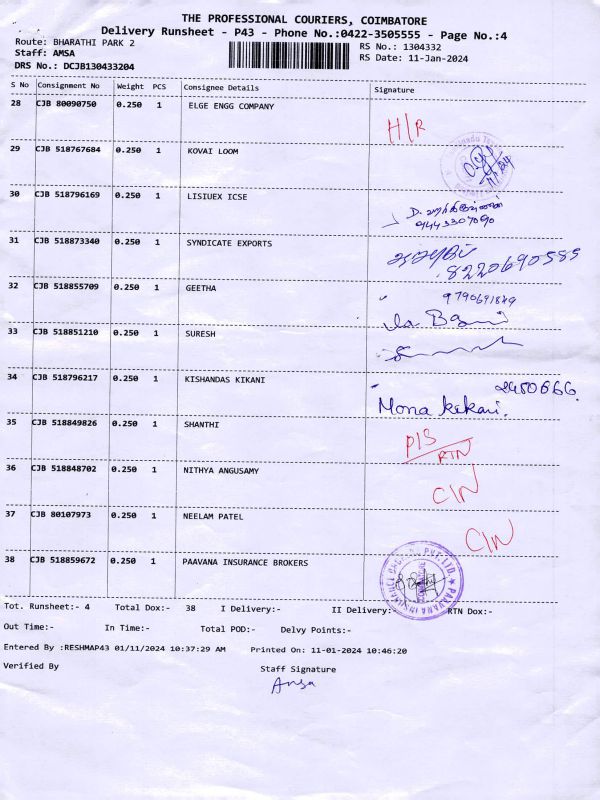 THE PROFESSIONAL COURIERS, COIMBATORE
Delivery Runsheet - P43 - Phone No.:0422-3505555 - Page No.:4
Route: BHARATHI PARK 2 RS No.: 1304332
Staff: AMSA RS Date: 11-Jan-2024
DRS No.: DCJB130433204
S No Consignment No Weight PCS Consignee Details Signature
28 CJB 80090750 0.250 1 ELGE ENGG COMPANY
H/R
29 CJB 518767684 0.250 1 KOVAI LOOM
30 CJB 518796169 0.250 1 LISIUEX ICSE
9443307090
31 CJB 518873340 0.250 1 SYNDICATE EXPORTS
8220690585
32 CJB 518855709 0.250 1 GEETHA
9790691849
33 CJB 518851210 0.250 1 SURESH
34 CJB 518796217 0.250 1 KISHANDAS KIKANI
2450666
Mona kikani.
35 CJB 518849826 0.250 1 SHANTHI
P/S
RTN
36 CJB 518848702 0.250 1 NITHYA ANGUSAMY
C/N
37 CJB 80107973 0.250 1 NEELAM PATEL
C/N
38 CJB 518859672 0.250 1 PAAVANA INSURANCE BROKERS
Tot. Runsheet:- 4 Total Dox:- 38 I Delivery:- II Delivery:- RTN Dox:-
Out Time:- In Time:- Total POD:- Delvy Points:-
Entered By :RESHMAP43 01/11/2024 10:37:29 AM Printed On: 11-01-2024 10:46:20
Verified By Staff Signature
Amsa